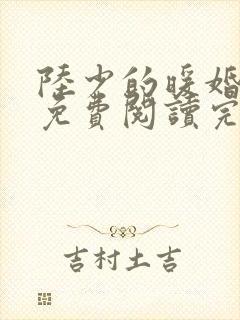 陸少的暖婚
免費閱讀完
吉村土吉